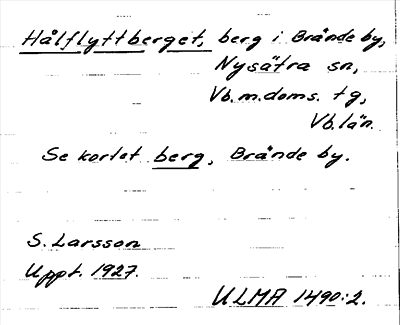 Hålflyttberget, berg i Brände by,
Nysätra sn,
Vb.m.doms. tg,
Vb.län.
Se kortet berg, Brände by.
S. Larsson
Uppt. 1927.
ULMA 1490:2.